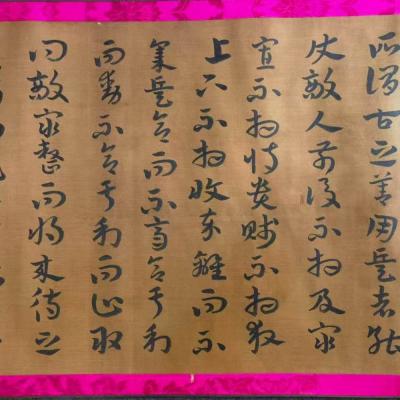 所謂古之善用兵者能
使敵人前後不相及眾
寡不相恃貴賤不相救
上下不相收卒離而不
集兵合而不齊合于利
而動不合于利而止敢
問敵眾整而將来待之